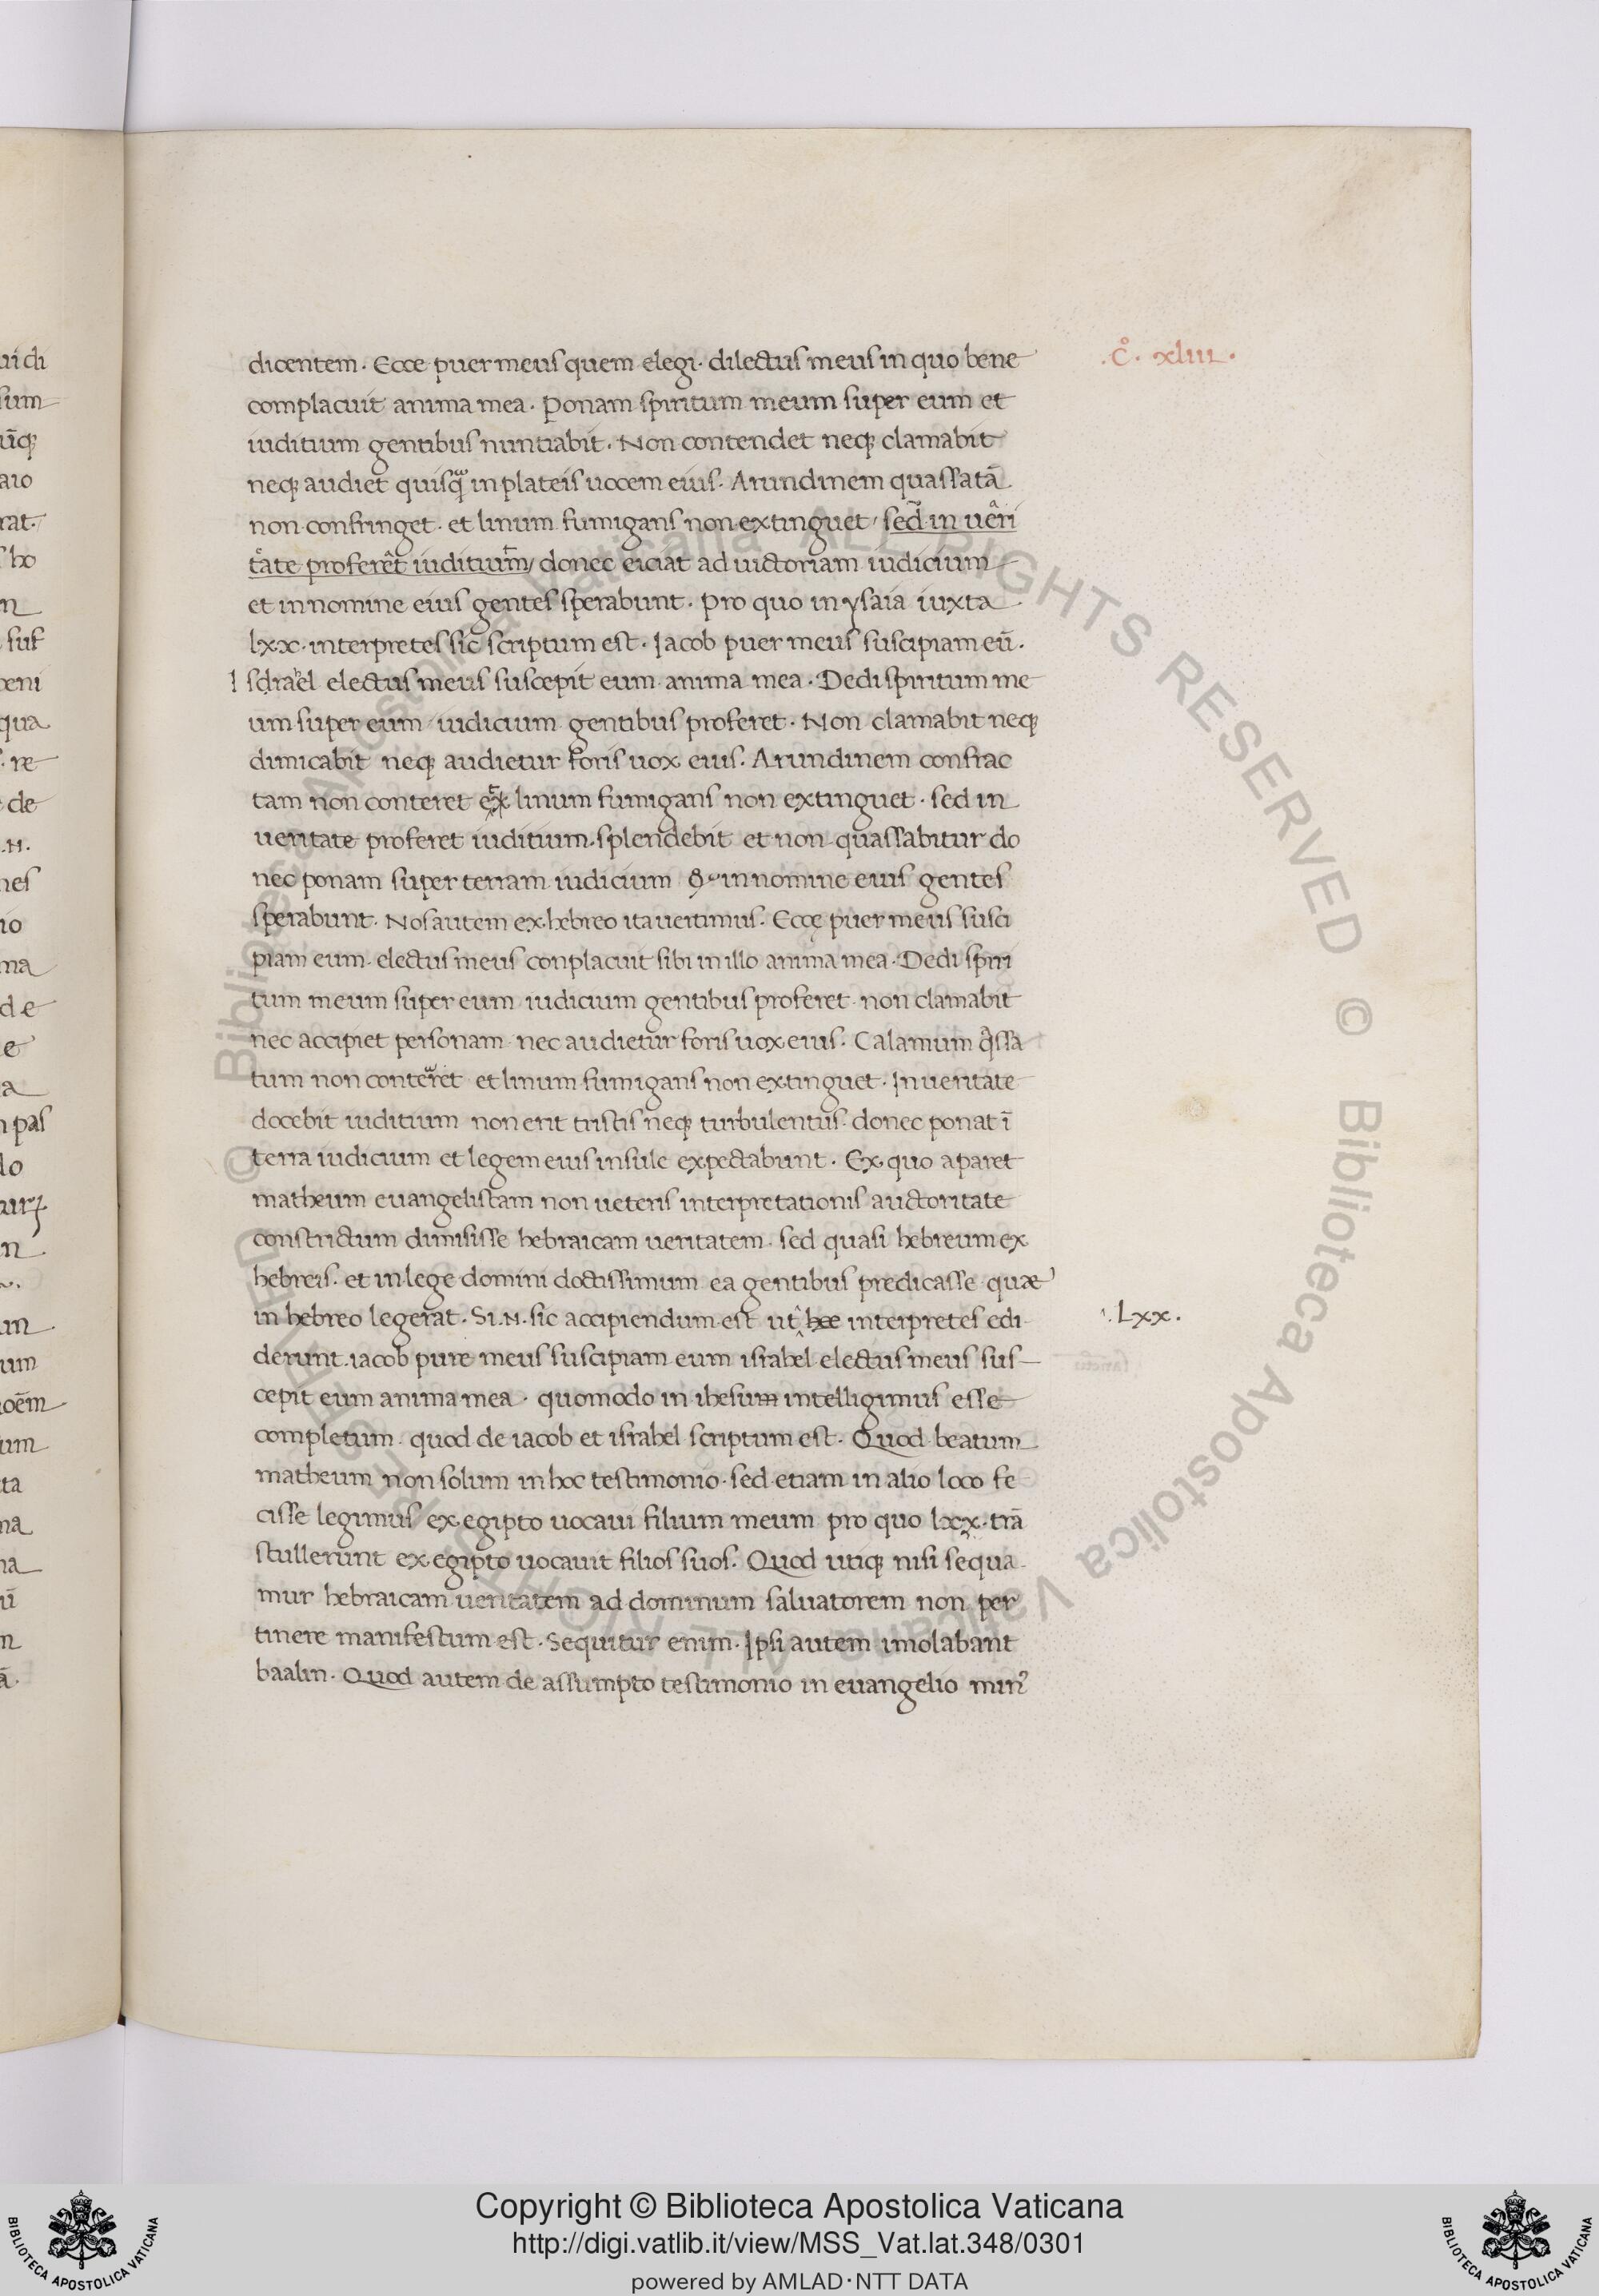 dicentem. Ecce puer meus quem elegi. dilectus meus in quo bene
.C̊. xliii.
complacuit anima mea. Ponam spiritum meum super eum et
iuditium gentibus nuntiabit. Non contendet neq; clamabit
neq; audiet quisq̃ in plateis uocem eius. Arundinem quassatā
non confringet. et linum fumigans non extinguet / sed in ueri
tate proferet iuditium / donec eiciat ad uictoriam iudicium
et in nomine eius gentes sperabunt. Pro quo in ysaia iuxta
lxx. interpretes sic scriptum est. Jacob puer meus suscipiam eū.
Isdrael electus meus suscepit eum anima mea. Dedi spiritum me
um super eum iudicium gentibus proferet. Non clamabit neq;
dimicabit neq; audietur foris uox eius. Arundinem confrac
tam non conteret et linum fumigans non extinguet. sed in
ueritate proferet iuditium. splendebit et non quassabitur do
nec ponam super terram iudicium & in nomine eius gentes
sperabunt. Nos autem ex hebreo ita uertimus. Eccę puer meus susci
piam eum. electus meus conplacuit sibi in illo anima mea. Dedi spiri
tum meum super eum iudicium gentibus proferet. non clamabit
nec accipiet personam nec audietur foris uox eius. Calamum q̃ssa
tum non conteret et linum fumigans non extinguet. In ueritate
docebit iuditium non erit tristis neq; turbulentus. donec ponat ī
terra iudicium et legem eius insule expectabunt. Ex quo aparet
matheum euangelistam non ueteris interpretationis auctoritate
constrictum dimisisse hebraicam ueritatem. sed quasi hebreum ex
hebreis. et in lege domini doctissimum ea gentibus predicasse quae
in hebreo legerat. Si .N. sic accipiendum est ut hae interpretes edi
.Lxx.
derunt. iacob pure meus suscipiam eum israhel electus meus sus
cepit eum anima mea. quomodo in ihesum intelligimus esse
completum. quod de iacob et israhel scriptum est. Quod beatum
matheum non solum in hoc testimonio. sed etiam in alio loco fe
cisse legimus ex egipto uocaui filium meum pro quo lxx. trā
stullerunt ex egipto uocauit filios suos. Quod utiq; nisi sequa
mur hebraicam ueritatem ad dominum saluatorem non per
tinere manifestum est. Sequitur enim. Ipsi autem imolabant
baalin. Quod autem de assumpto testimonio in euangelio min᾿
ui di
sum
aio
rat.
ho
suf
qua
. re
de
.N.
nes
io
ma
de
e
a
pas
lo
n
um
oēm
um
ta
na
ū
n
© Biblioteca Apostolica Vaticana ALL RIGHTS RESERVED
© Biblioteca Apostolica Vaticana ALL RIGHTS RESERVED
Copyright © Biblioteca Apostolica Vaticana
http://digi.vatlib.it/view/MSS_Vat.lat.348/0301
powered by AMLAD·NTT DATA
BIBLIOTECA APOSTOLICA VATICANA
BIBLIOTECA APOSTOLICA VATICANA